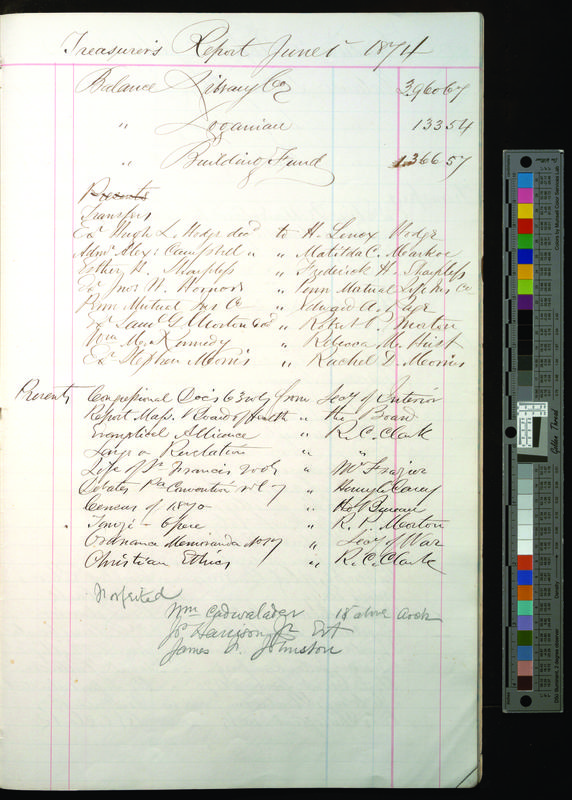 Treasurer's Report June 1st 1874
Balance Library Co 3,960 67
" Loganian 133 54
" Building Fund 1366 57
Presents
Transfers
Exr Hugh L. Hodge decd to H. Lenox Hodge
Admr Alex: Campbell " " Matilda C. Markoe
Esther H. Sharpless " Frederick H. Sharpless
Exr " Penn Mutual Life Ins Co
Penn Mutual Ins Co " Edward A.
Exr Saml G Morton decd " Robert P. Morton
Wm M. Kennedy " Rebecca M. Hirst
Exr Stephen Morris " Rachel D. Morris
Presents Congressional Docs 63 vols from Secy of Interior
Report Mass. Board of Health " the Board
Evangelical Alliance " R. C. Clark
Revelation " "
Life of Dr Francis " Mr Frazier
Debates Pa Convention vol 7 " Henry C Carey
Census of 1870 "
Opere " R. P. Morton
Ordnance Memoranda No 17 " Secy of War
Christian Ethics " R. C. Clark
Forfeited
Wm Cadwalader 18 above Arch
Js Harrison Jr Est
James F. Johnston